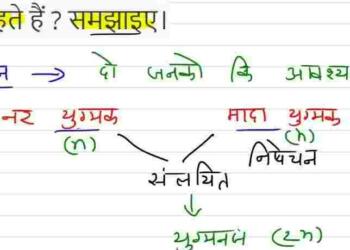 हते हैं ? समझाइए।
न → दो जनको कि आवश्य
नर युग्मक मादा युग्मक
(n) (n)
निषेचन
संलयित
↓
युग्मनज (2n)